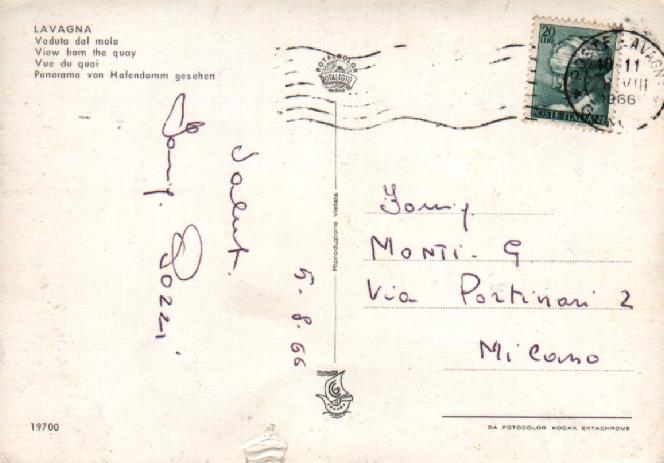 LAVAGNA
Veduta dal molo
View from the quay
Vue du quai
Panorama von Hafendamm gesehen
ROTALCOLOR
ROTALFOTO
MILANO
20
POSTE ITALIANE
11
VIII
1966
Salut.
Famig. Pozzi
5.8.66
Riproduzione vietata
Famig.
MONTI - G
Via Portinari 2
Milano
19700
DA FOTOCOLOR KODAK EKTACHROME